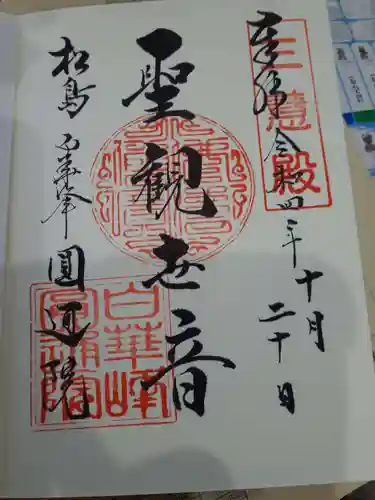 奉拝 令和四年十月二十日
三慧殿
聖観世音
松島 白華峰 圓通院
白華峰圓通院